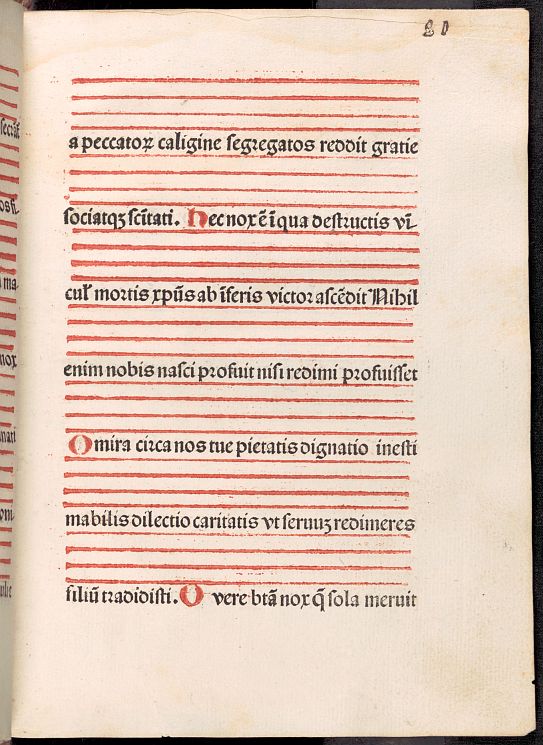 20
a peccatoꝝ caligine ſegregatos reddit gratie
ſociatqꝫ ſcĩtati. Hec nox ẽ ĩ qua deſtructis vĩ-
cul' mortis xp̃us ab ĩferis victor aſcẽdit Nihil
enim nobis naſci profuit niſi redimi profuiſſet
O mira circa nos tue pietatis dignatio ineſti
mabilis dilectio caritatis vt ſeruuꝫ redimeres
filiũ tradidiſti. O vere btã nox q̃ ſola meruit